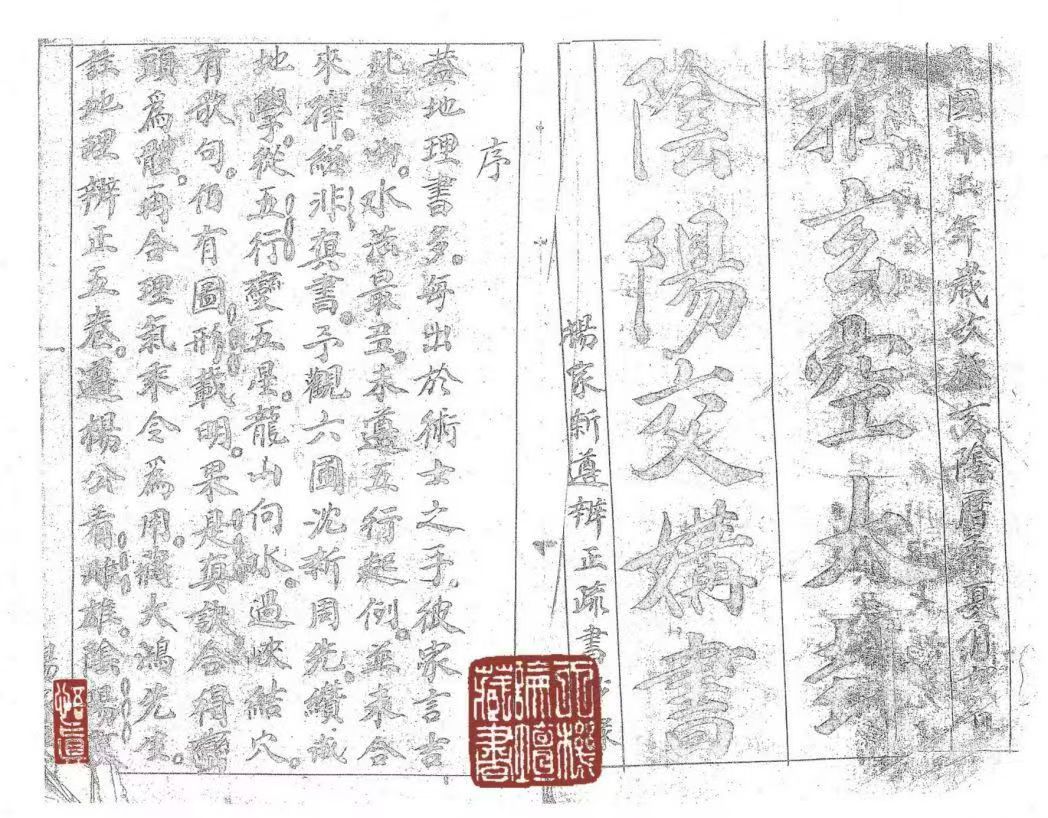 國年歲次癸亥陰曆夏月
玄空大
陰陽交媾書
楊家新遵辨正疏書
序
蓋地理書多。每出於術士之手。彼家言吉
此書凶。水法最丑。未遵五行起例。並未合
來律。非真書。予觀六圃沈新周先續
地學。從五行變五星。龍山向水。過峽結穴。
有歌句。仍有圖形載明。果是真訣合得巒
頭爲體。再合理氣乘令爲用。蔣大鴻先生。
註地理辨正五卷。遵楊公看雌雄。陰陽
悟真
藏書